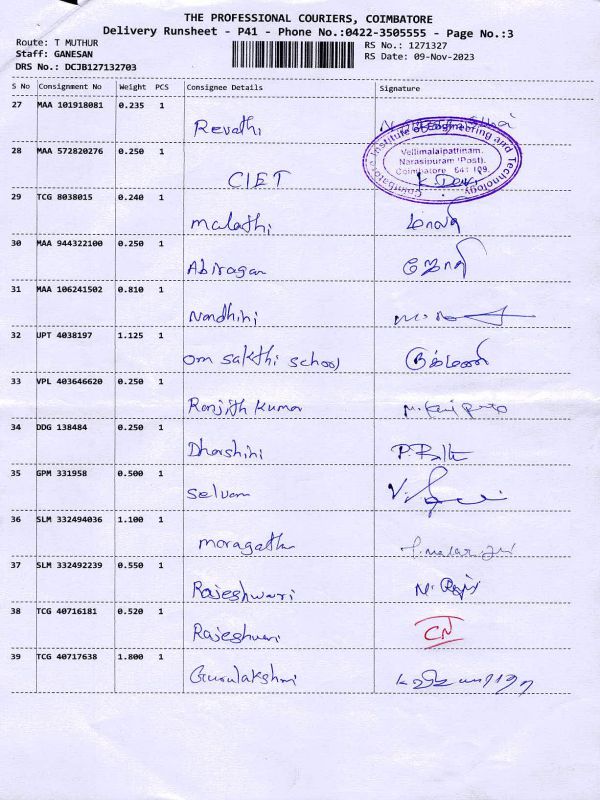 THE PROFESSIONAL COURIERS, COIMBATORE
Delivery Runsheet - P41 - Phone No.:0422-3505555 - Page No.:3
Route: T MUTHUR
RS No.: 1271327
Staff: GANESAN
RS Date: 09-Nov-2023
DRS No.: DCJB127132703
S No Consignment No Weight PCS Consignee Details Signature
27 MAA 101918081 0.235 1
Revathi
Coimbatore Institute of Engineering and Technology
Vellimalaipattinam,
Narasipuram (Post),
Coimbatore 641 109.
28 MAA 572820276 0.250 1
CIET K. Devi
29 TCG 8038015 0.240 1
Malathi மாலதி
30 MAA 944322100 0.250 1
Abiragan
31 MAA 106241502 0.810 1
Nandhini
32 UPT 4038197 1.125 1
Om Sakthi School
33 VPL 403646620 0.250 1
Ranjith Kumar
34 DDG 138484 0.250 1
Dharshini
35 GPM 331958 0.500 1
Selvam
36 SLM 332494036 1.100 1
37 SLM 332492239 0.550 1
Rajeshwari
38 TCG 40716181 0.520 1
Rajeshwari CN
39 TCG 40717638 1.800 1
Gurulakshmi